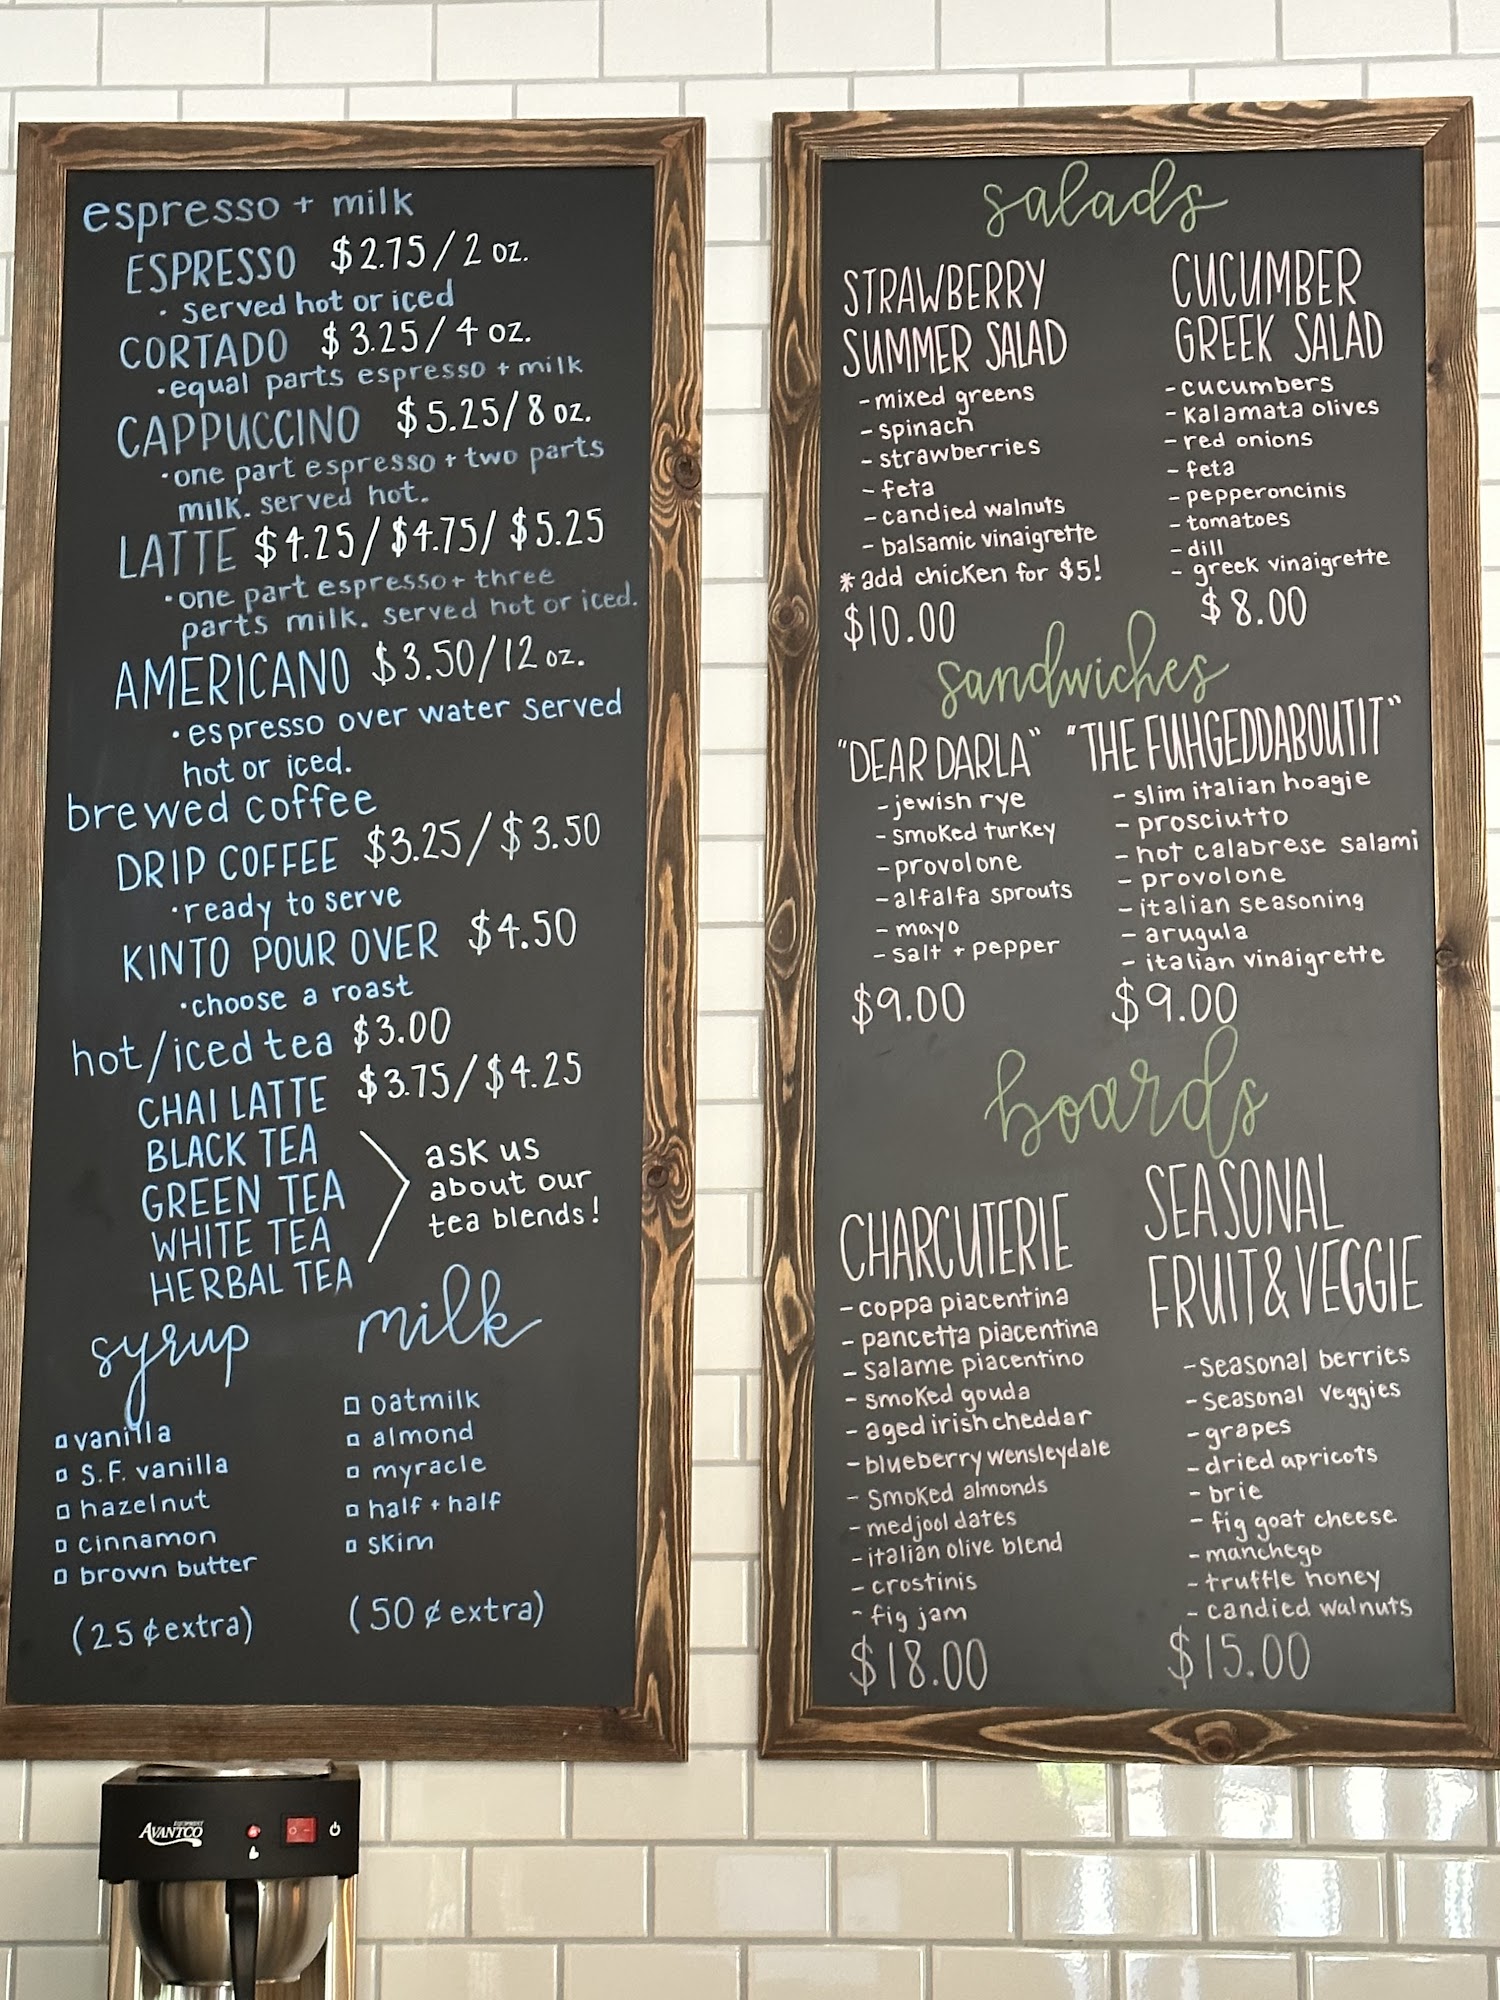 espresso + milk
ESPRESSO $2.75/2 oz.
· served hot or iced
CORTADO $3.25/4 oz.
· equal parts espresso + milk
CAPPUCCINO $5.25/8 oz.
· one part espresso + two parts
milk. served hot.
LATTE $4.25/$4.75/$5.25
· one part espresso + three
parts milk. served hot or iced.
AMERICANO $3.50/12 oz.
· espresso over water served
hot or iced.
brewed coffee
DRIP COFFEE $3.25/$3.50
· ready to serve
KINTO POUR OVER $4.50
· choose a roast
hot/iced tea $3.00
CHAI LATTE $3.75/$4.25
BLACK TEA
GREEN TEA
WHITE TEA
HERBAL TEA
ask us
about our
tea blends!
syrup
vanilla
S.F. vanilla
hazelnut
cinnamon
brown butter
(25¢ extra)
milk
oatmilk
almond
myracle
half + half
skim
(50¢ extra)
salads
STRAWBERRY
SUMMER SALAD
- mixed greens
- spinach
- strawberries
- feta
- candied walnuts
- balsamic vinaigrette
* add chicken for $5!
$10.00
CUCUMBER
GREEK SALAD
- cucumbers
- kalamata olives
- red onions
- feta
- pepperoncinis
- tomatoes
- dill
- greek vinaigrette
$8.00
sandwiches
"DEAR DARLA"
- jewish rye
- smoked turkey
- provolone
- alfalfa sprouts
- mayo
- salt + pepper
$9.00
"THE FUHGEDDABOUTIT"
- slim italian hoagie
- prosciutto
- hot calabrese salami
- provolone
- italian seasoning
- arugula
- italian vinaigrette
$9.00
boards
CHARCUTERIE
- coppa piacentina
- pancetta piacentina
- salame piacentino
- smoked gouda
- aged irish cheddar
- blueberry wensleydale
- smoked almonds
- medjool dates
- italian olive blend
- crostinis
- fig jam
$18.00
SEASONAL
FRUIT & VEGGIE
- seasonal berries
- seasonal veggies
- grapes
- dried apricots
- brie
- fig goat cheese
- manchego
- truffle honey
- candied walnuts
$15.00
AVANTCO